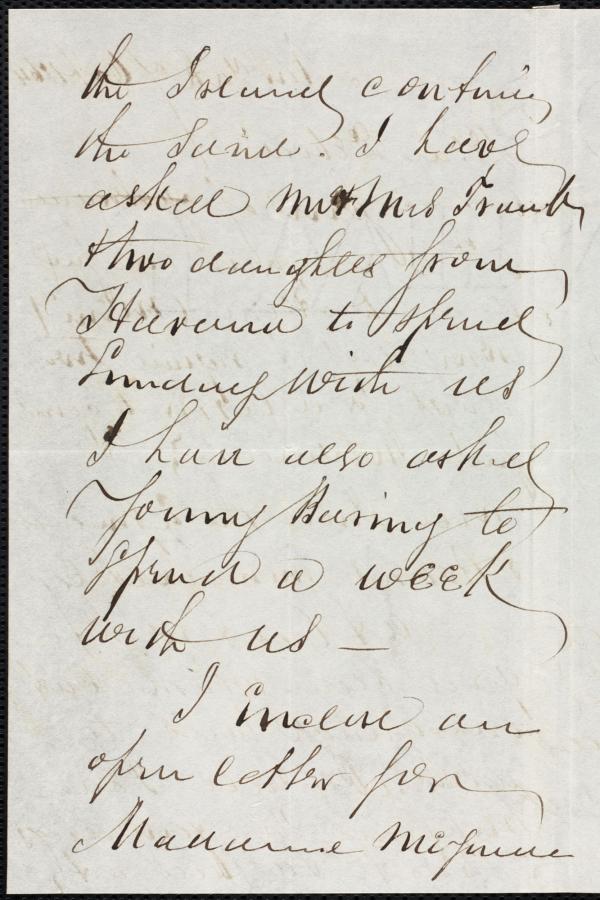 the Island continue
the same. I have
asked Mr & Mrs Frank
& two daughters from
Havana to spend
Sunday with us
I have also asked
Young Baring to
spend a week
with us —
I enclose an
open letter for
Madame